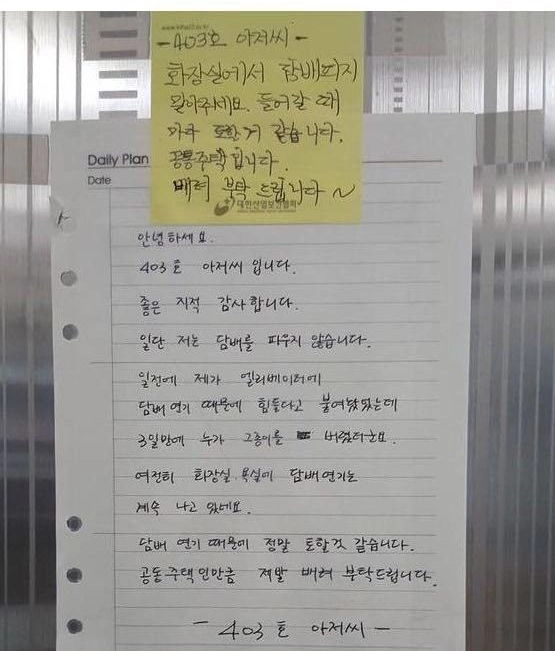 -403호 아저씨-
화장실에서 담배피지
말아주세요. 들어갈 때
마다 토할거 같습니다.
공동주택입니다.
배려 부탁 드립니다~
대한산업보건협회
Daily Plan
Date
안녕하세요.
403호 아저씨 입니다.
좋은 지적 감사합니다.
일단 저는 담배를 피우지 않습니다.
일전에 제가 엘리베이터에
담배 연기 때문에 힘들다고 붙여놨었는데
3일만에 누가 그종이를 버렸더군요.
여전히 화장실. 욕실에 담배연기는
계속 나고 있네요.
담배 연기 때문에 정말 토할것 같습니다.
공동주택인만큼 제발 배려 부탁드립니다.
- 403호 아저씨 -